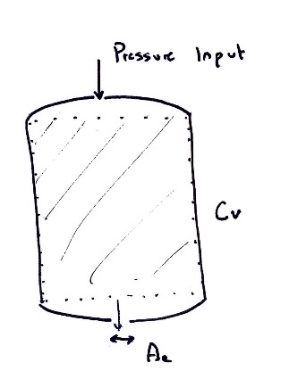 Pressure Input
Cv
Ae